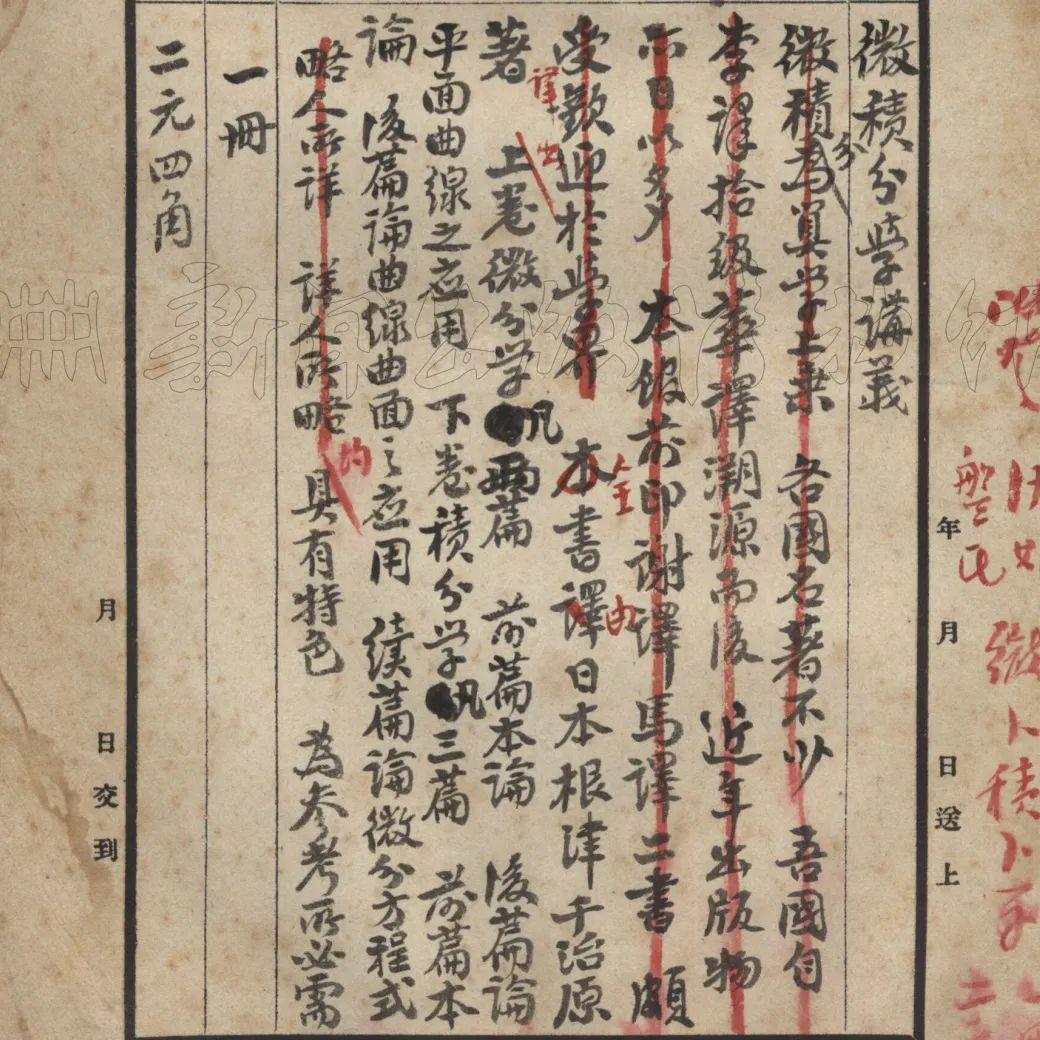 微積分學講義
微積分為算學上乘 各國名著不少 吾國自
李譯拾級華譯溯源而後 近年出版物
亦日以多 本館前印謝譯馬譯二書 頗
受歡迎於學界 本書全譯日本根津千治原
著 上卷微分學凡兩篇 前篇本論 後篇論
平面曲線之应用 下卷積分学凡三篇 前篇本
論 後篇論曲線曲面之应用 續篇論微分方程式
略人所詳 詳人所略 均具有特色 為參考所必需
一冊
二元四角
譯出
由
年 月 日送上
月 日交到